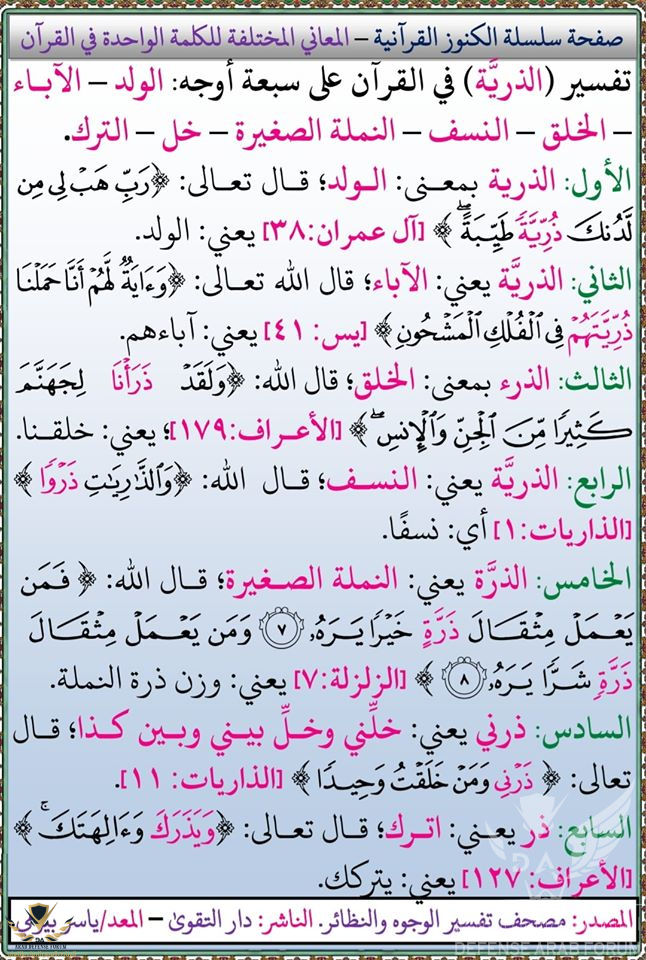 صفحة سلسلة الكنوز القرآنية – المعاني المختلفة للكلمة الواحدة في القرآن
تفسير (الذريَّة) في القرآن على سبعة أوجه: الولد – الآباء
– الخلق – النسف – النملة الصغيرة – خل – الترك.
الأول: الذرية بمعنى: الـولد؛ قـال تعـالى: ﴿رَبِّ هَبْ لِي مِن
لَّدُنكَ ذُرِّيَّةً طَيِّبَةً ۖ﴾ [آل عمران:٣٨] يعني: الولد.
الثاني: الذريَّة يعني: الآباء؛ قال الله تعـالى: ﴿وَءَايَةٌ لَّهُمْ أَنَّا حَمَلْنَا
ذُرِّيَّتَهُمْ فِي الْفُلْكِ الْمَشْحُونِ﴾ [يس: ٤١] يعني: آباءهم.
الثالث: الذرء بمعنى: الخلق؛ قال الله: ﴿وَلَقَدْ ذَرَأْنَا لِجَهَنَّمَ
كَثِيرًا مِّنَ الْجِنِّ وَالْإِنسِ ۖ﴾ [الأعـراف:١٧٩]؛ يعني: خلقنـا.
الرابع: الذريَّة يعني: النسـف؛ قـال الله: ﴿وَالذَّارِيَاتِ ذَرْوًا﴾
[الذاريات:١] أي: نسفًا.
الخامس: الذرَّة يعني: النملة الصـغيرة؛ قـال الله: ﴿فَـمَن
يَعْـمَلْ مِثْقَـالَ ذَرَّةٍ خَيْرًا يَـرَهُۥ ٧ وَمَن يَعْـمَلْ مِثْقَـالَ
ذَرَّةٍ شَـرًّا يَـرَهُۥ ٨ ﴾ [الزلزلة:٧] يعني: وزن ذرة النملة.
السادس: ذرني يعني: خلِّني وخلِّ بيـني وبـين كـذا؛ قـال
تعالى: ﴿ ذَرْنِي وَمَنْ خَلَقْتُ وَحِيـدًا ﴾ [الذاريات: ١١].
السابع: ذر يعـني: اتـرك؛ قـال تعـالى: ﴿وَيَذَرَكَ وَءَالِهَتَكَ ۚ﴾
[الأعراف: ١٢٧] يعني: يتركك.
المصدر: مصحف تفسير الوجوه والنظائر. الناشر: دار التقوىٰ – المعد/ياسر بيومي
DA
ARAB DEFENSE FORUM
DA
DEFENSE ARAB FORUM